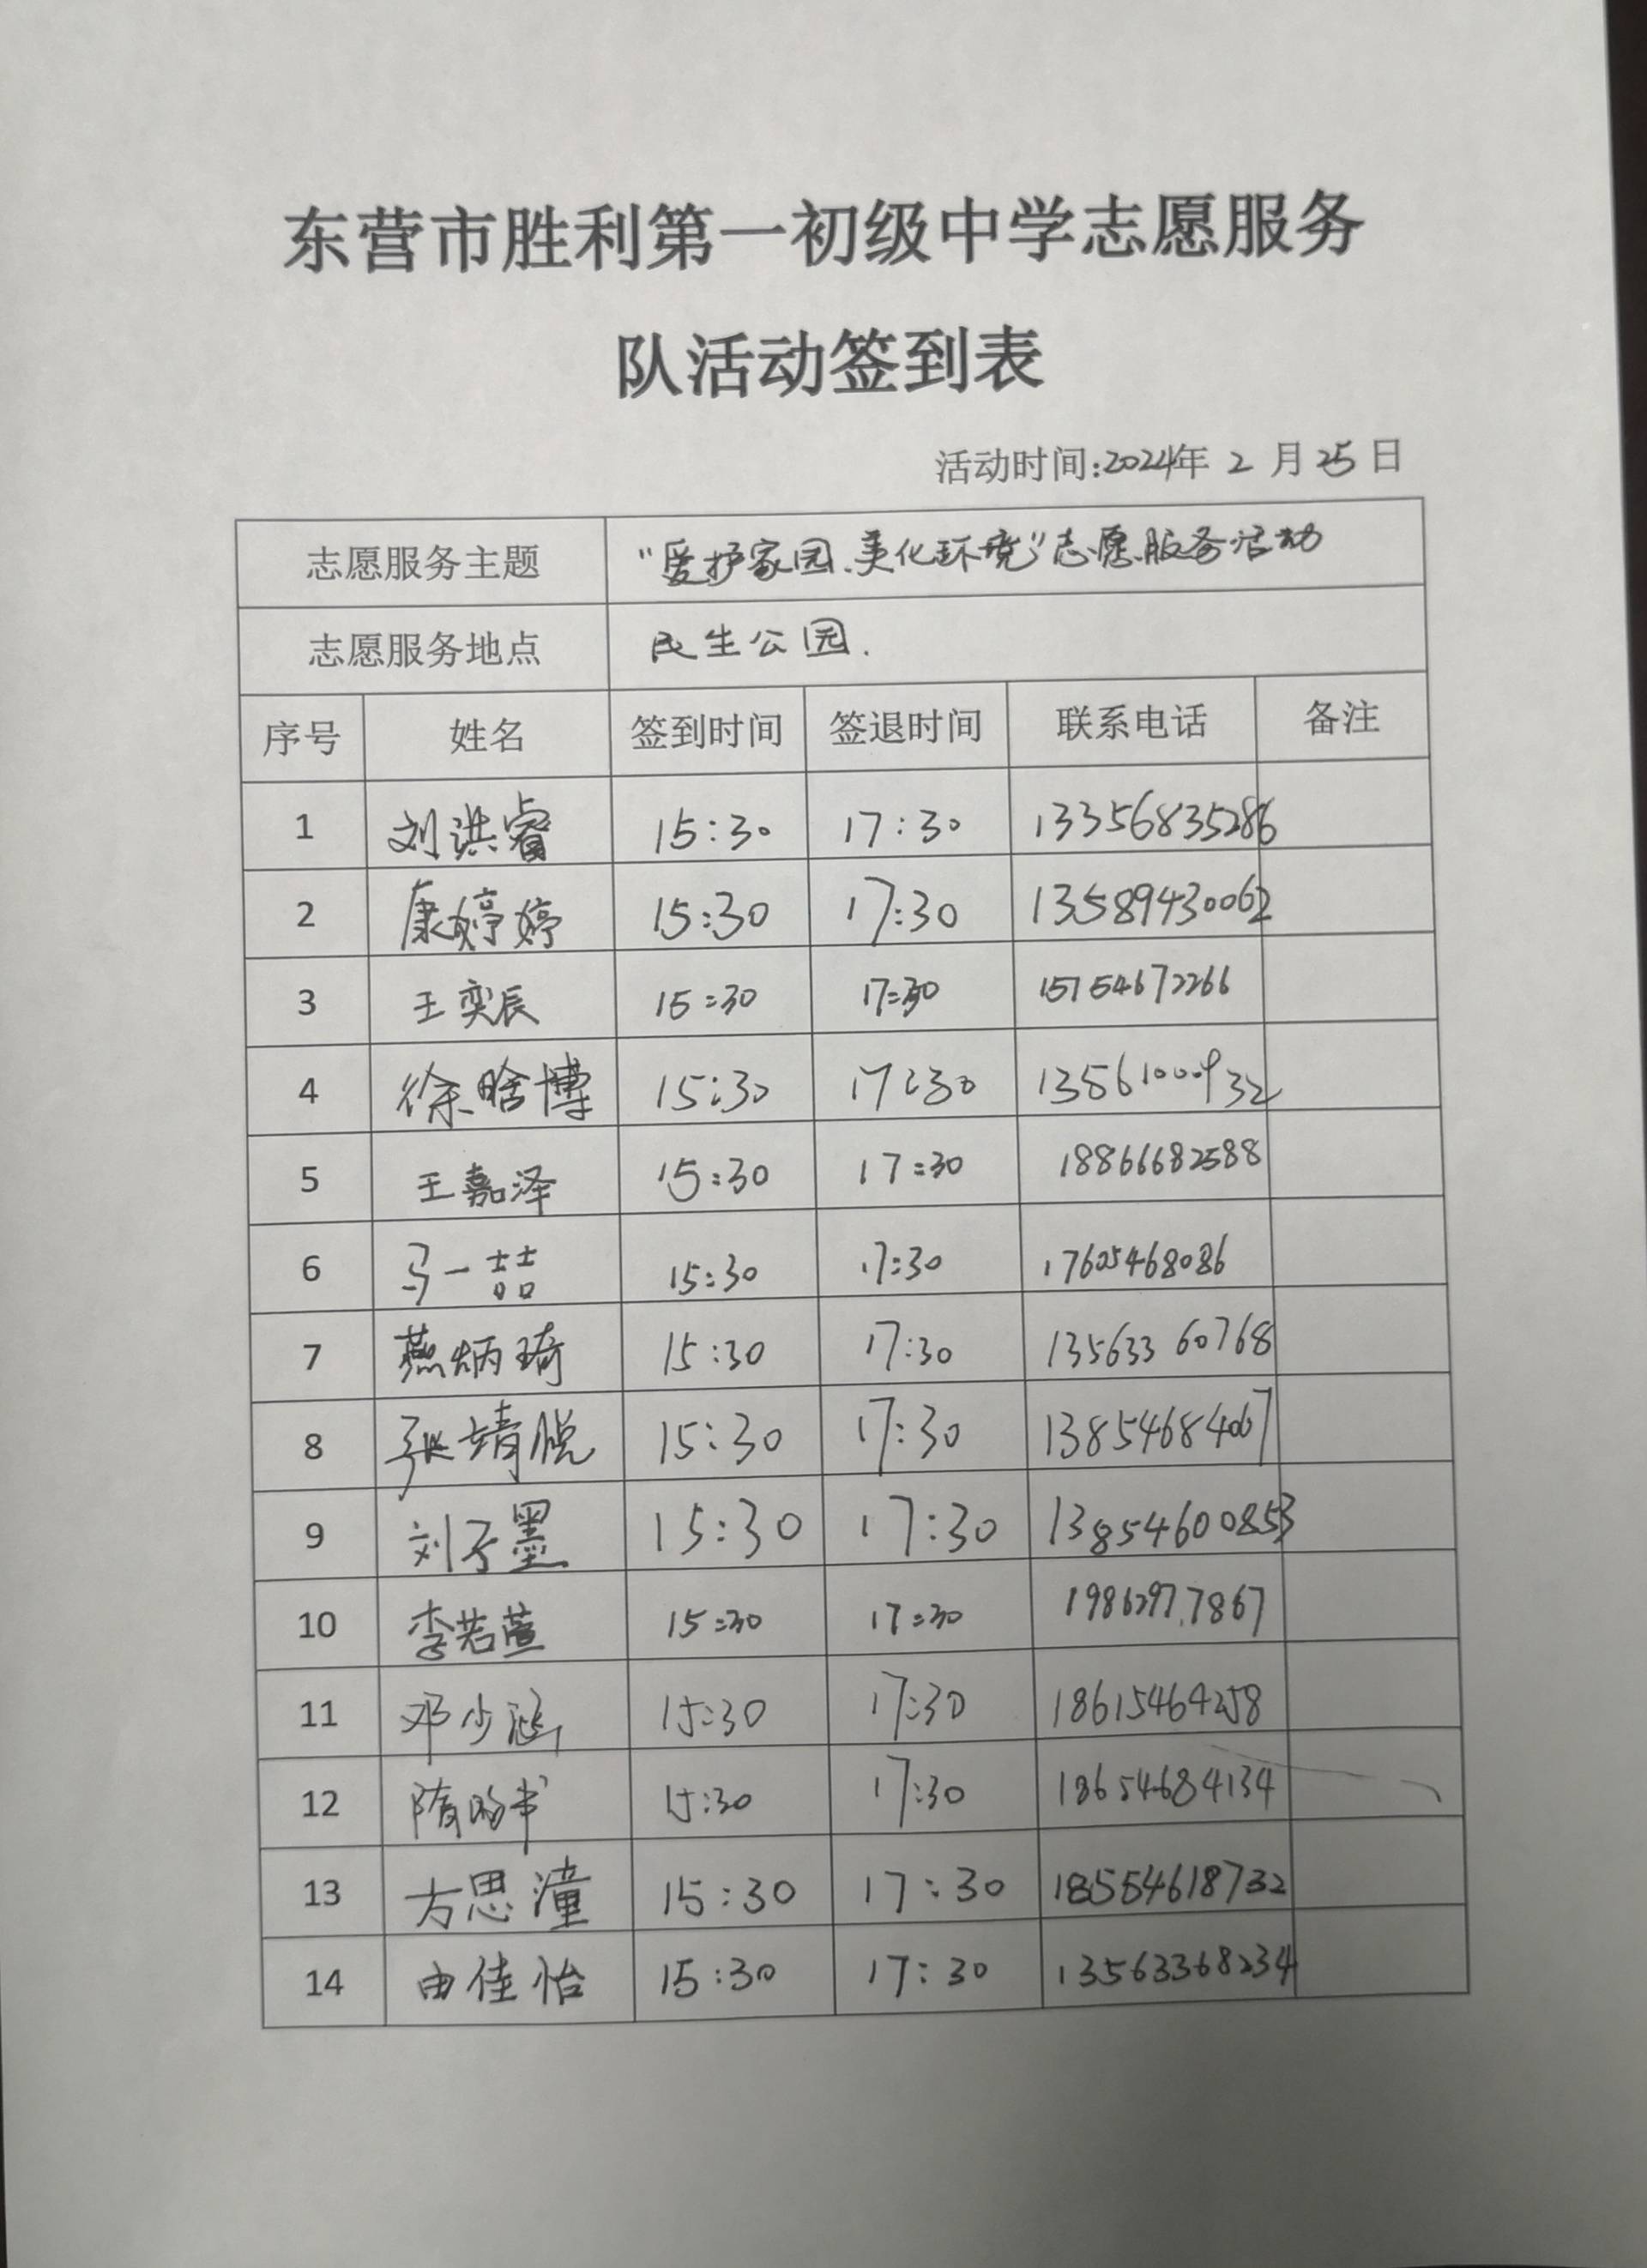 东营市胜利第一初级中学志愿服务
队活动签到表
活动时间:2024年 2 月 25 日
志愿服务主题 “爱护家园、美化环境”志愿服务活动
志愿服务地点 民生公园.
序号 姓名 签到时间 签退时间 联系电话 备注
1 刘洪睿 15:30 17:30 13356835286
2 康婷婷 15:30 17:30 13589430062
3 王奕辰 15:30 17:30 15154672266
4 徐晗博 15:30 17:30 13561000932
5 王嘉泽 15:30 17:30 18866682588
6 马一喆 15:30 17:30 17605468086
7 燕炳琦 15:30 17:30 13563360768
8 张靖悦 15:30 17:30 13854684007
9 刘子墨 15:30 17:30 13854600853
10 李若萱 15:30 17:30 19862977867
11 邓少涵 15:30 17:30 18615464258
12 15:30 17:30 18654684134
13 方思潼 15:30 17:30 18554618732
14 由佳怡 15:30 17:30 13563368234